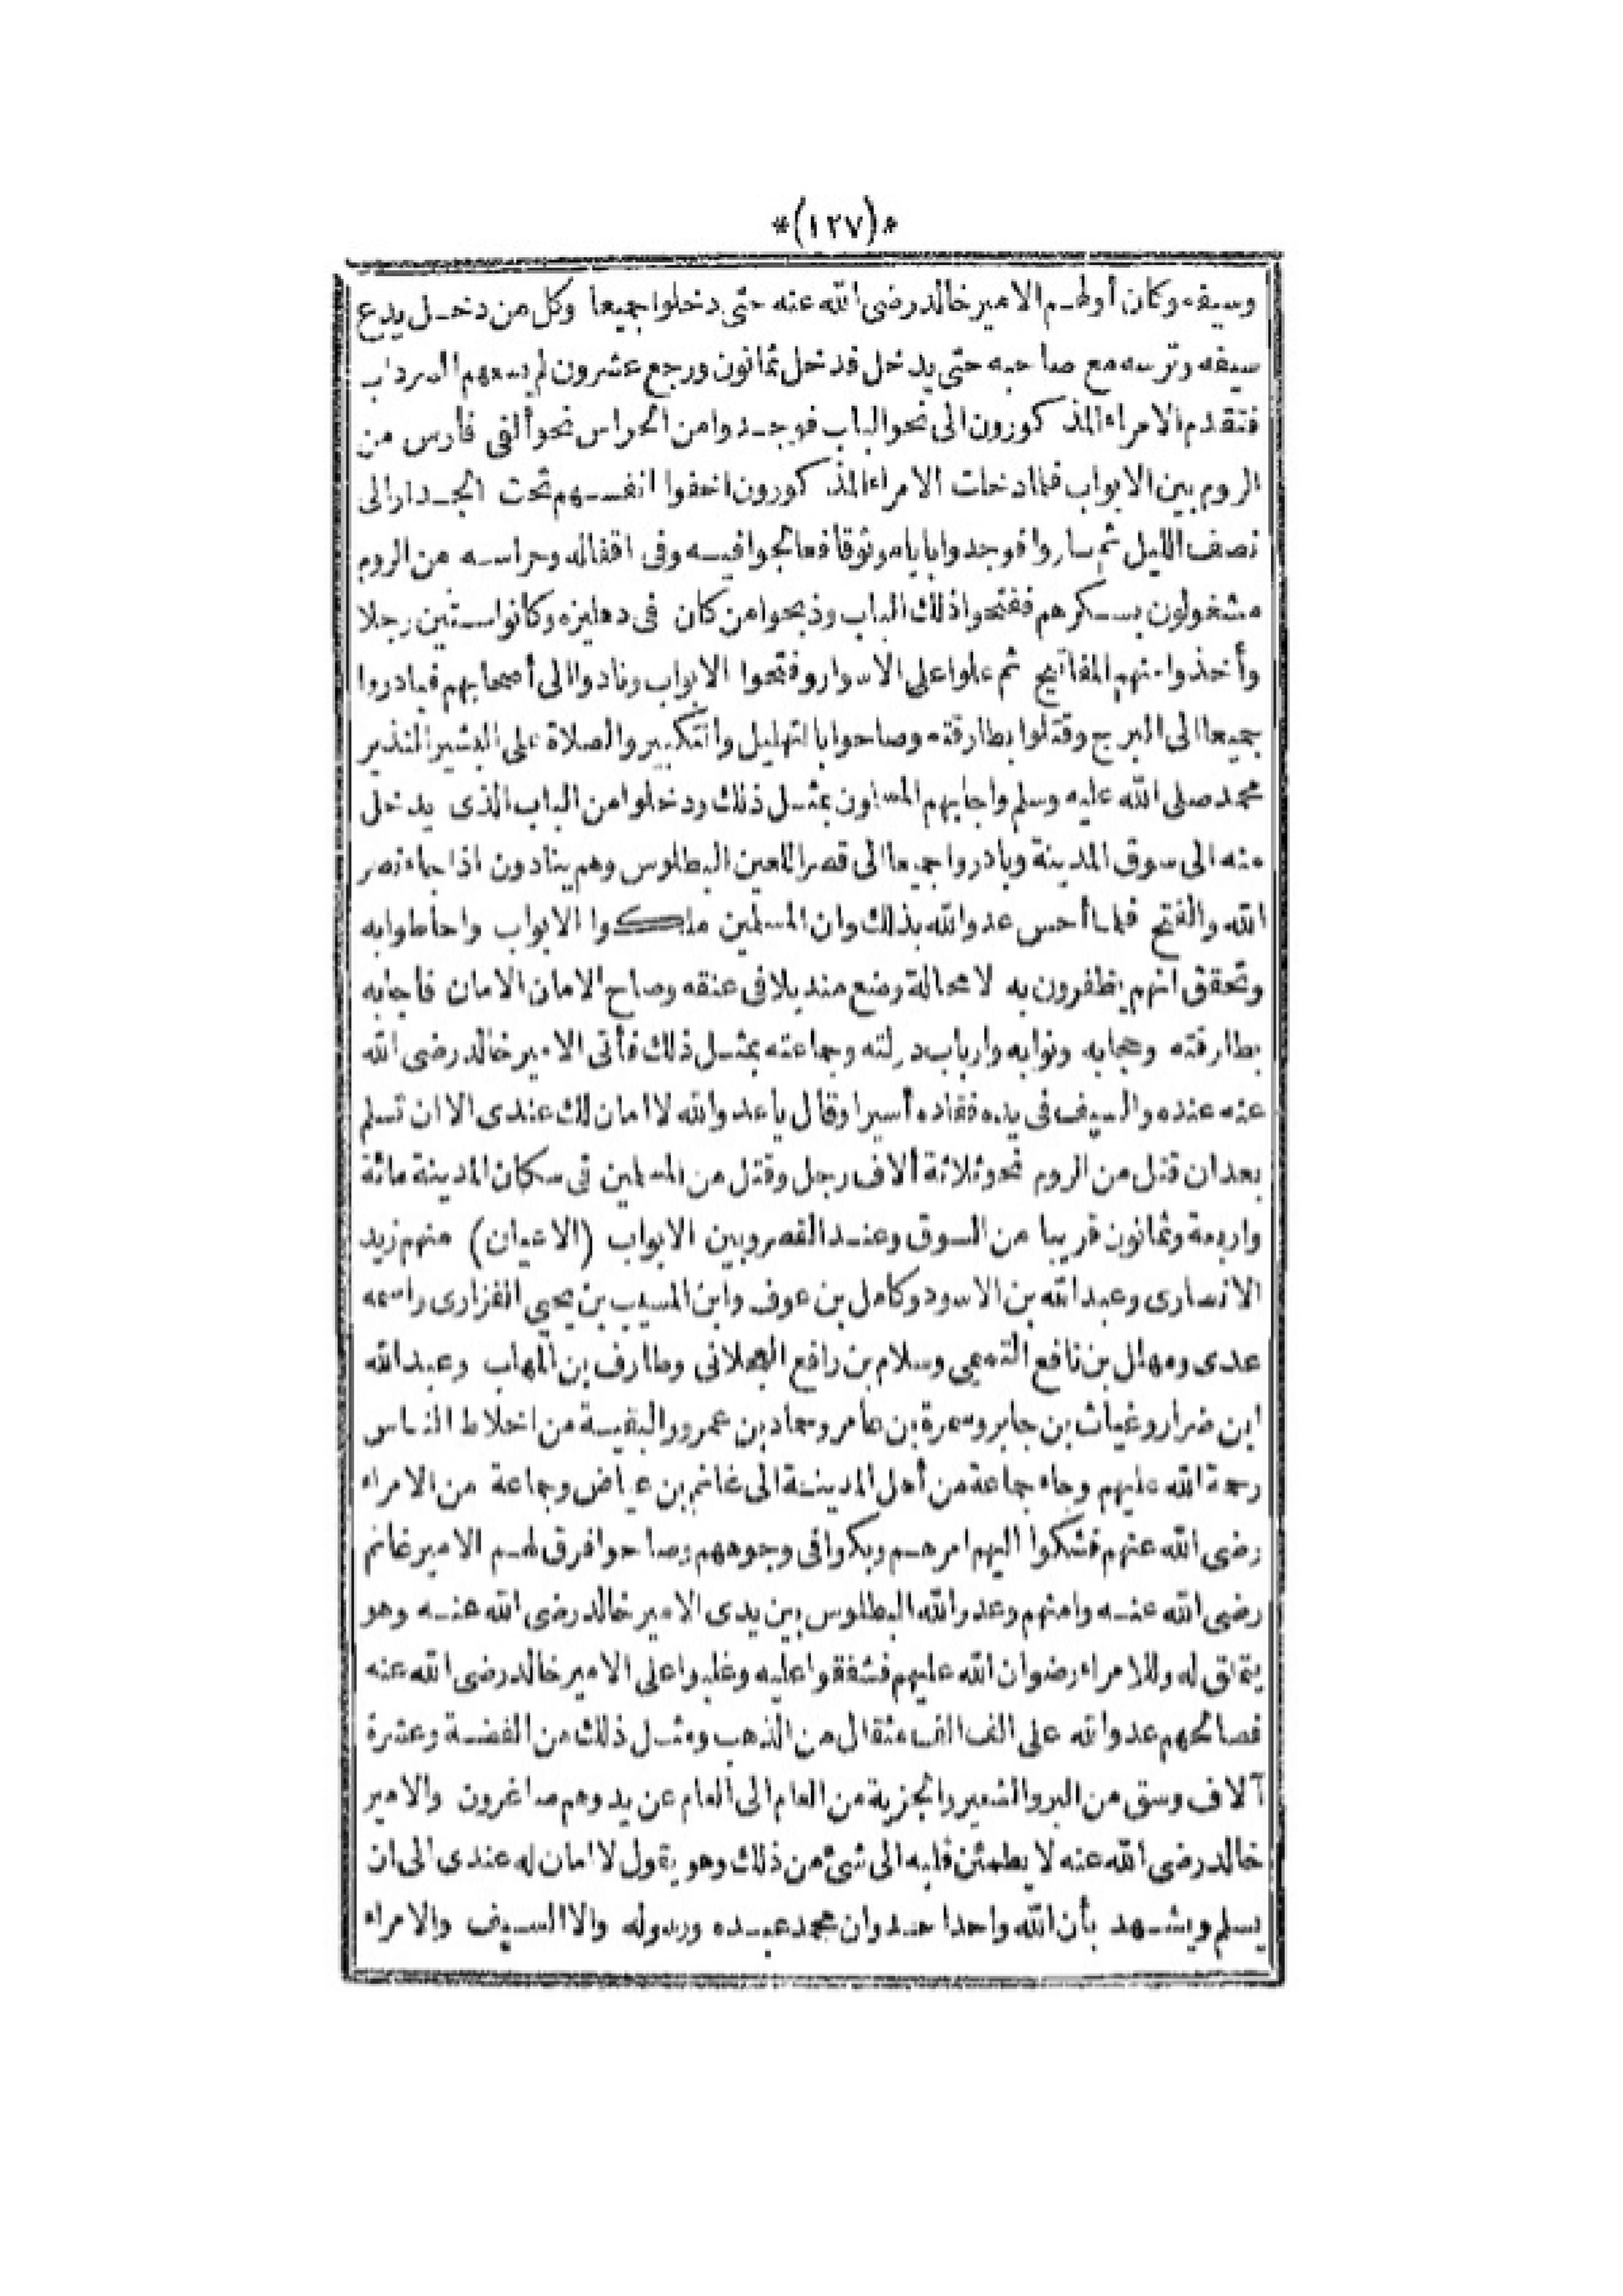 *(١٢٧)*
وسيفه وكان أولهم الامير خالد رضى الله عنه حتى دخلوا جميعا وكل من دخل يدع
سيفه وترسه مع صاحبه حتى يدخل فدخل ثمانون ورجع عشرون لم يسعهم السرداب
فتقدم الامراء المذكورون الى نحو الباب فوجدوا من الحراس نحو ألفى فارس من
الروم بين الابواب فلما دخلت الامراء المذكورون اخفوا انفسهم تحت الجدار الى
نصف الليل ثم ساروا فوجدوا بابا موثوقا فعالجوا فيه وفى اقفاله وحراسه من الروم
مشغولون بسكرهم ففتحوا ذلك الباب وذبحوا من كان فى دهليزه وكانوا ستين رجلا
وأخذوا منهم المفاتيح ثم علوا على الاسوار وفتحوا الابواب ونادوا الى أصحابهم فبادروا
جميعا الى البرج وقتلوا بطارقته وصاحوا بالتهليل والتكبير والصلاة على البشير النذير
محمد صلى الله عليه وسلم واجابهم المسلمون بمثل ذلك ودخلوا من الباب الذى يدخل
منه الى سوق المدينة وبادروا جميعا الى قصر اللعين البطلوس وهم ينادون اذا جاء نصر
الله والفتح فلما أحس عدو الله بذلك وان المسلمين ملكوا الابواب واحاطوا به
وتحقق انهم يظفرون به لا محالة وضع منديلا فى عنقه وصاح الامان الامان فاجابه
بطارقته وحجابه ونوابه وارباب دولته وجماعته بمثل ذلك فأتى الامير خالد رضى الله
عنه عنده والسيف فى يده فقاده أسيرا وقال يا عدو الله لا امان لك عندى الا ان تسلم
بعد ان قتل من الروم نحو ثلاثة ألاف رجل وقتل من المسلمين فى سكان المدينة مائة
واربعة وثمانون قريبا من السوق وعند القصر وبين الابواب (الاعيان) منهم زيد
الانصارى وعبد الله بن الاسود وكامل بن عوف وابن المسيب بن يحيى الفزارى واسمه
عدى ومهلل بن نافع التميمى وسلام بن رافع العجلانى وطارف بن المهاب وعبد الله
ابن ضرار وغياث بن جابر وسمرة بن عامر وحماد بن عمرو والبقية من اخلاط الناس
رحمة الله عليهم وجاء جماعة من أهل المدينة الى غانم بن عياض وجماعة من الامراء
رضى الله عنهم فشكوا اليهم امرهم وبكوا فى وجوههم وصاحوا فرق لهم الامير غانم
رضى الله عنه وامنهم وعدو الله البطلوس بين يدى الامير خالد رضى الله عنه وهو
يتملق له وللامراء رضوان الله عليهم فشفقوا عليه وغلبوا على الامير خالد رضى الله عنه
فصالحهم عدو الله على الف الف مثقال من الذهب ومثل ذلك من الفضة وعشرة
آلاف وسق من البر والشعير والجزية من العام الى العام عن يد وهم صاغرون والامير
خالد رضى الله عنه لا يطمئن قلبه الى شئ من ذلك وهو يقول لا امان له عندى الى ان
يسلم ويشهد بأن الله واحد احد وان محمد عبده ورسوله والا السيف والامراء